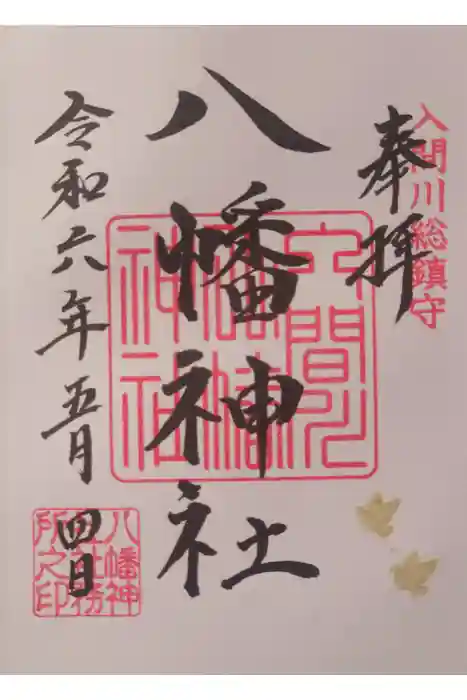 入間川総鎮守
奉拝
八幡神社
入間川八幡神社
令和六年五月四日
八幡神社社務所之印